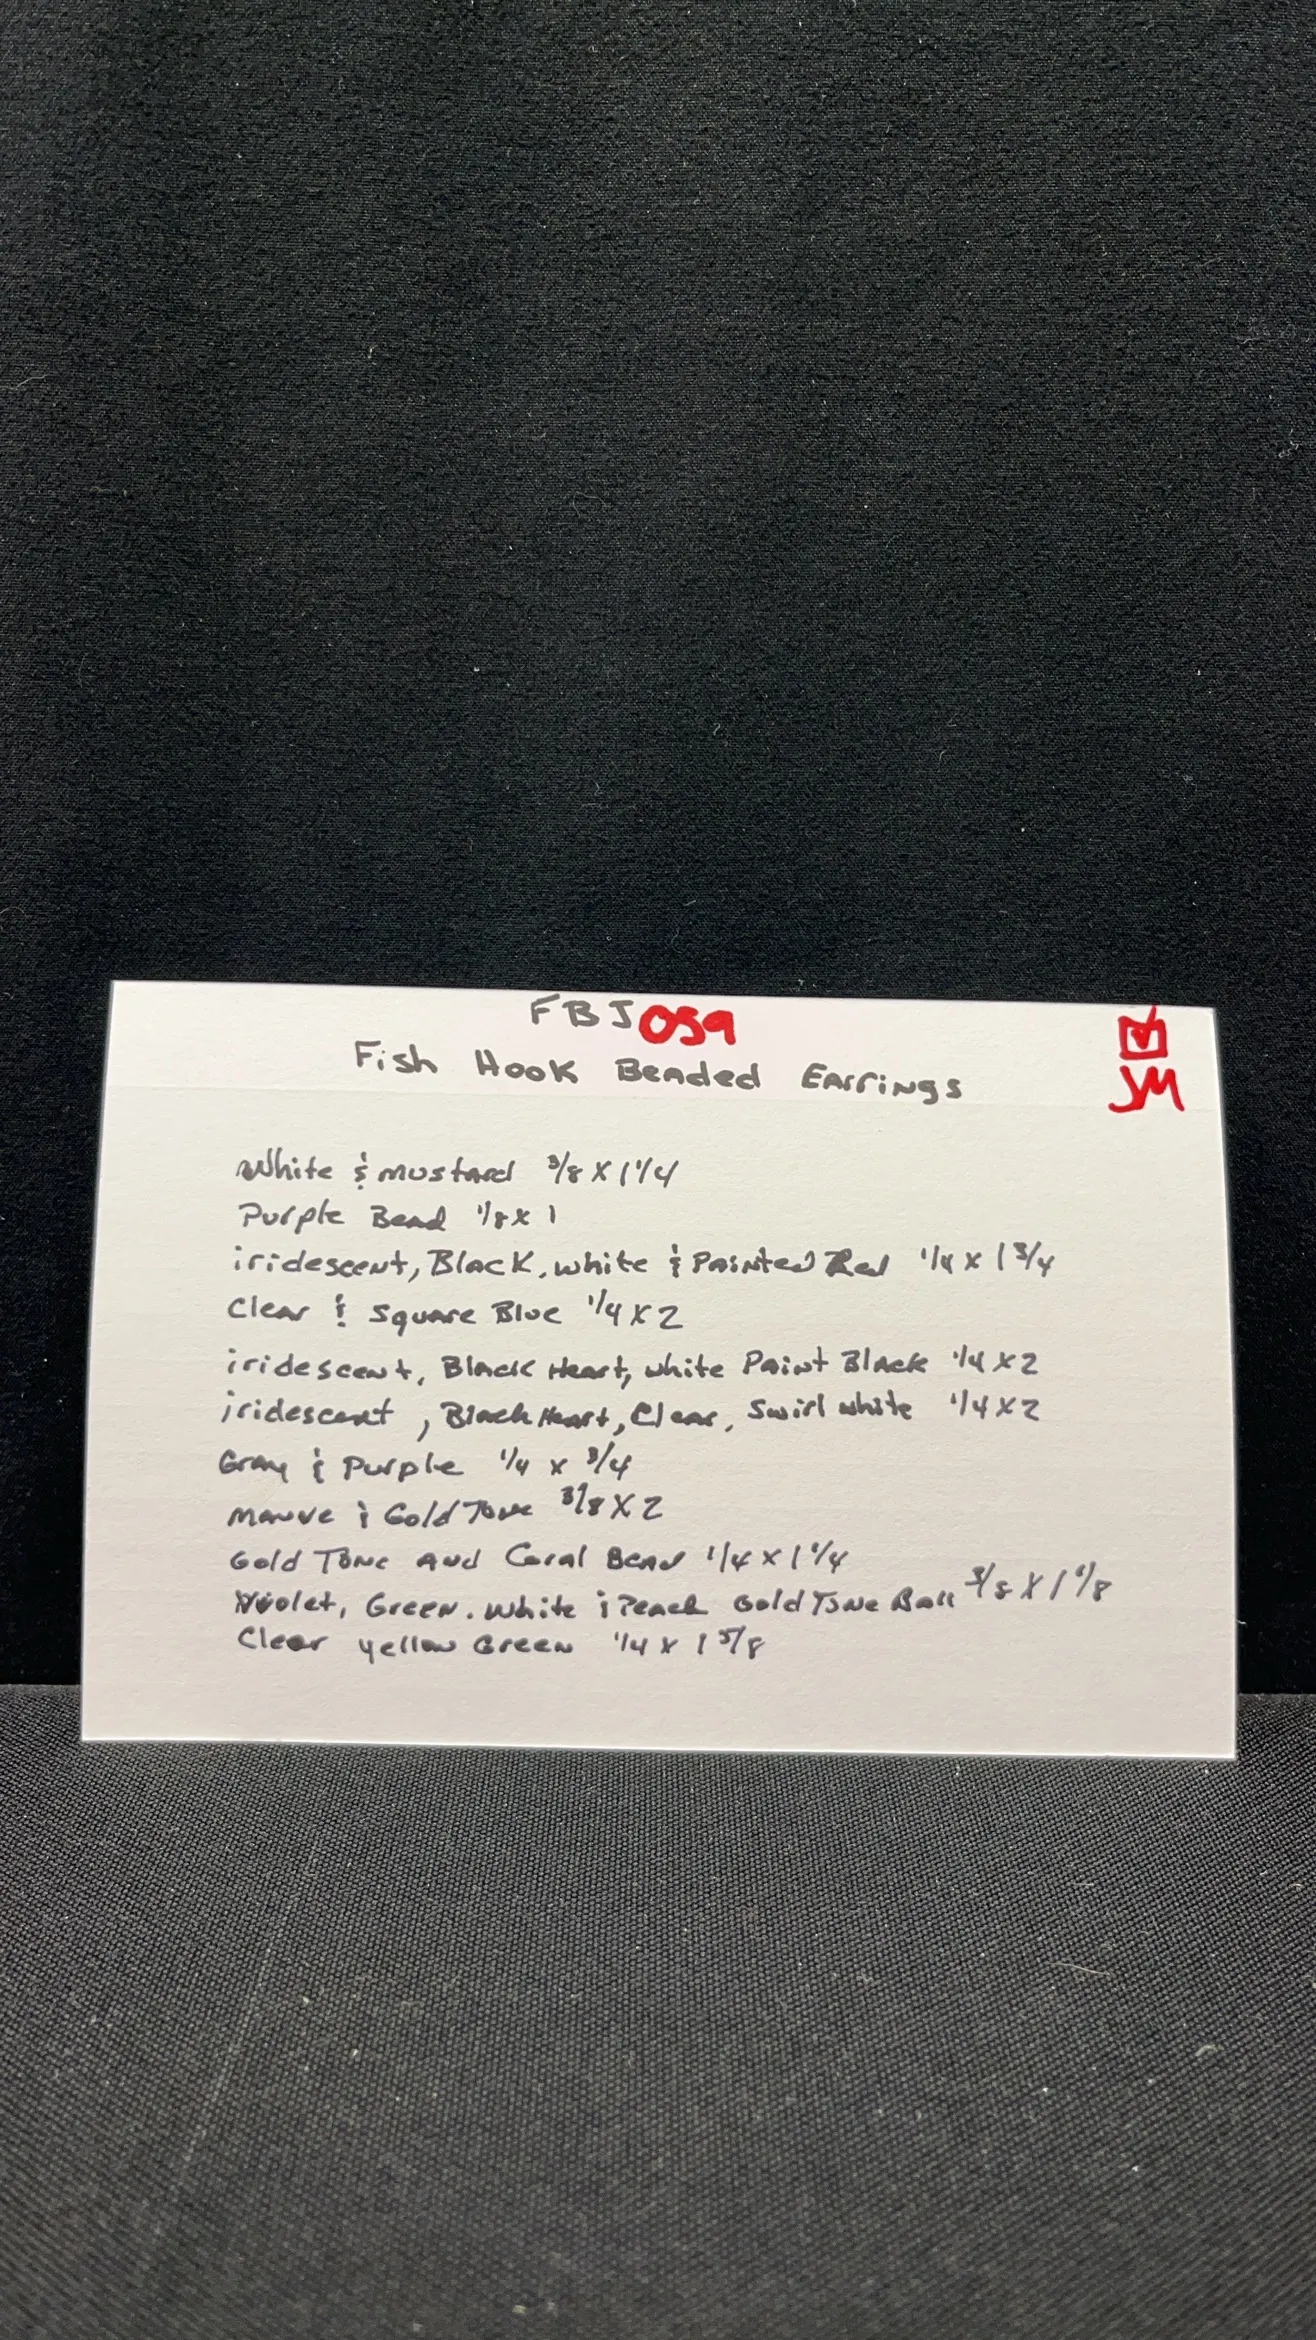 FBJ059
Fish Hook Beaded Earrings
JM
White & mustard 3/8 X 1 1/4
Purple Bead 1/8 X 1
iridescent, Black, white & Painted Red 1/4 x 1 3/4
Clear & Square Blue 1/4 X 2
iridescent, Black Heart, white Paint Black 1/4 X 2
iridescent, Black Heart, Clear, Swirl white 1/4 X 2
Gray & Purple 1/4 x 3/4
mauve & Gold Tone 3/8 X 2
Gold Tone and Coral Bead 1/4 X 1 1/4
Violet, Green, White & Peach Gold Tone Ball 3/8 X 1 1/8
Clear yellow Green 1/4 X 1 5/8